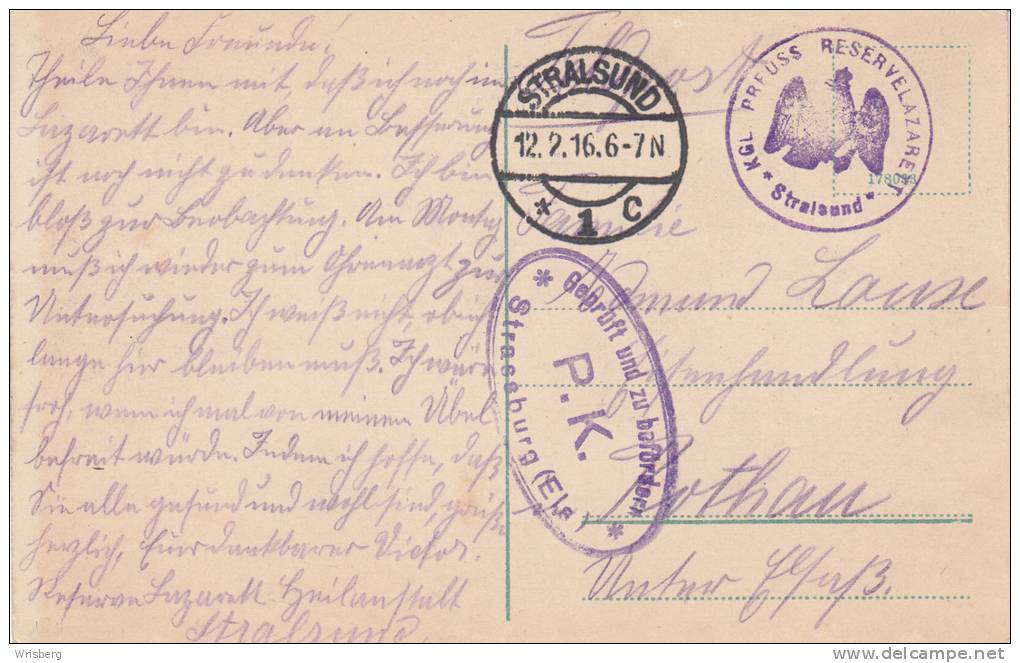 Liebe Freunde!
Theile Ihnen mit, daß ich noch im
Lazarett bin. Aber an Besserung
ist noch nicht zu denken. Ich bin
bloß zur Beobachtung. Am Montag
muß ich wieder zum Ohrenarzt zur
Untersuchung. Ich weiß nicht, ob ich
lange hier bleiben muß. Ich wäre
froh, wenn ich mal von meinem Übel
befreit würde. Indem ich hoffe, daß
Sie alle gesund und wohl sind, grüßt
herzlich, Euer dankbarer Victor.
Reserve Lazarett Heilanstalt
Stralsund.
F. Post
STRALSUND
12.2.16.6-7N
* 1 C
KGL PREUSS RESERVELAZARETT
* Stralsund *
178033
Familie
Edmund Louse
Eisenhandlung
Rothau
Unter Elsaß.
Geprüft und zu befördern
P.K.
* Strassburg (Els.) *
Wrisberg
delcampe.net